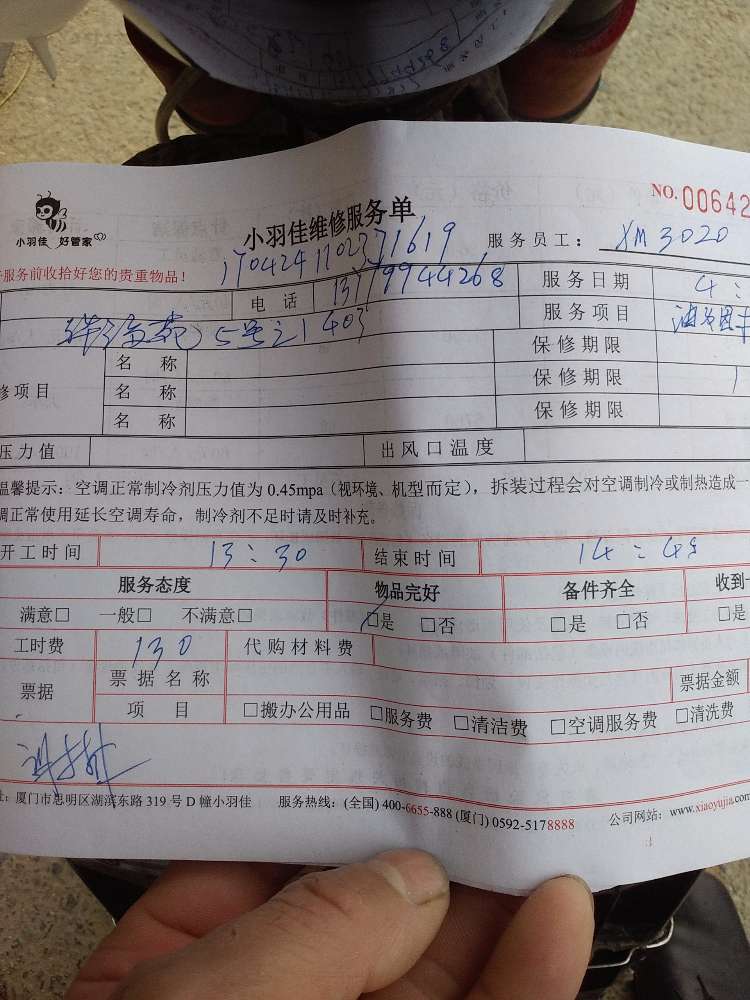 小羽佳 好管家
小羽佳维修服务单
NO.00642
服务员工： XM3020
服务前收拾好您的贵重物品！
电 话 13779944268 服务日期 4 :
5号之1403 服务项目
名 称 保修期限
修项目 名 称 保修期限 1
名 称 保修期限
压力值 出风口温度
温馨提示：空调正常制冷剂压力值为 0.45mpa（视环境、机型而定），拆装过程会对空调制冷或制热造成一
调正常使用延长空调寿命，制冷剂不足时请及时补充。
开工时间 13:30 结束时间 14:48
服务态度 物品完好 备件齐全 收到
满意□ 一般□ 不满意□ □是 □否 □是 □否 □是
工时费 130 代购材料费
票据 票据名称 票据金额
项 目 □搬办公用品 □服务费 □清洁费 □空调服务费 □清洗费
址：厦门市思明区湖滨东路 319 号 D 幢小羽佳 服务热线：(全国) 400-6655-888 (厦门) 0592-5178888 公司网站：www.xiaoyujia.com